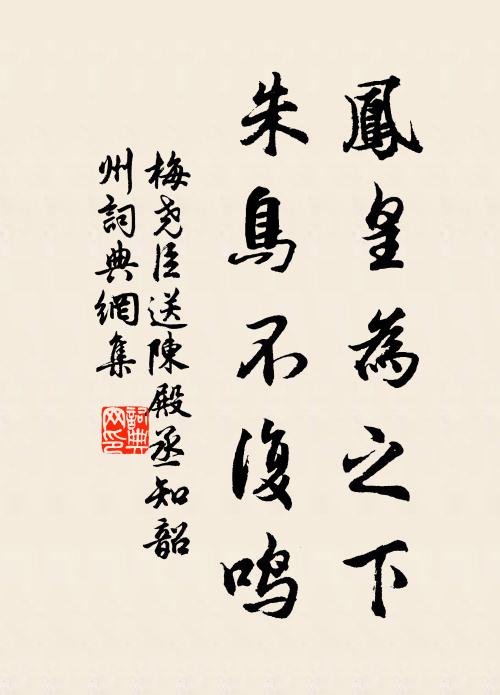 鳳皇為之下
朱鳥不復鳴
梅尧臣送陳殿丞知韶
州詞典網集
詞典网印